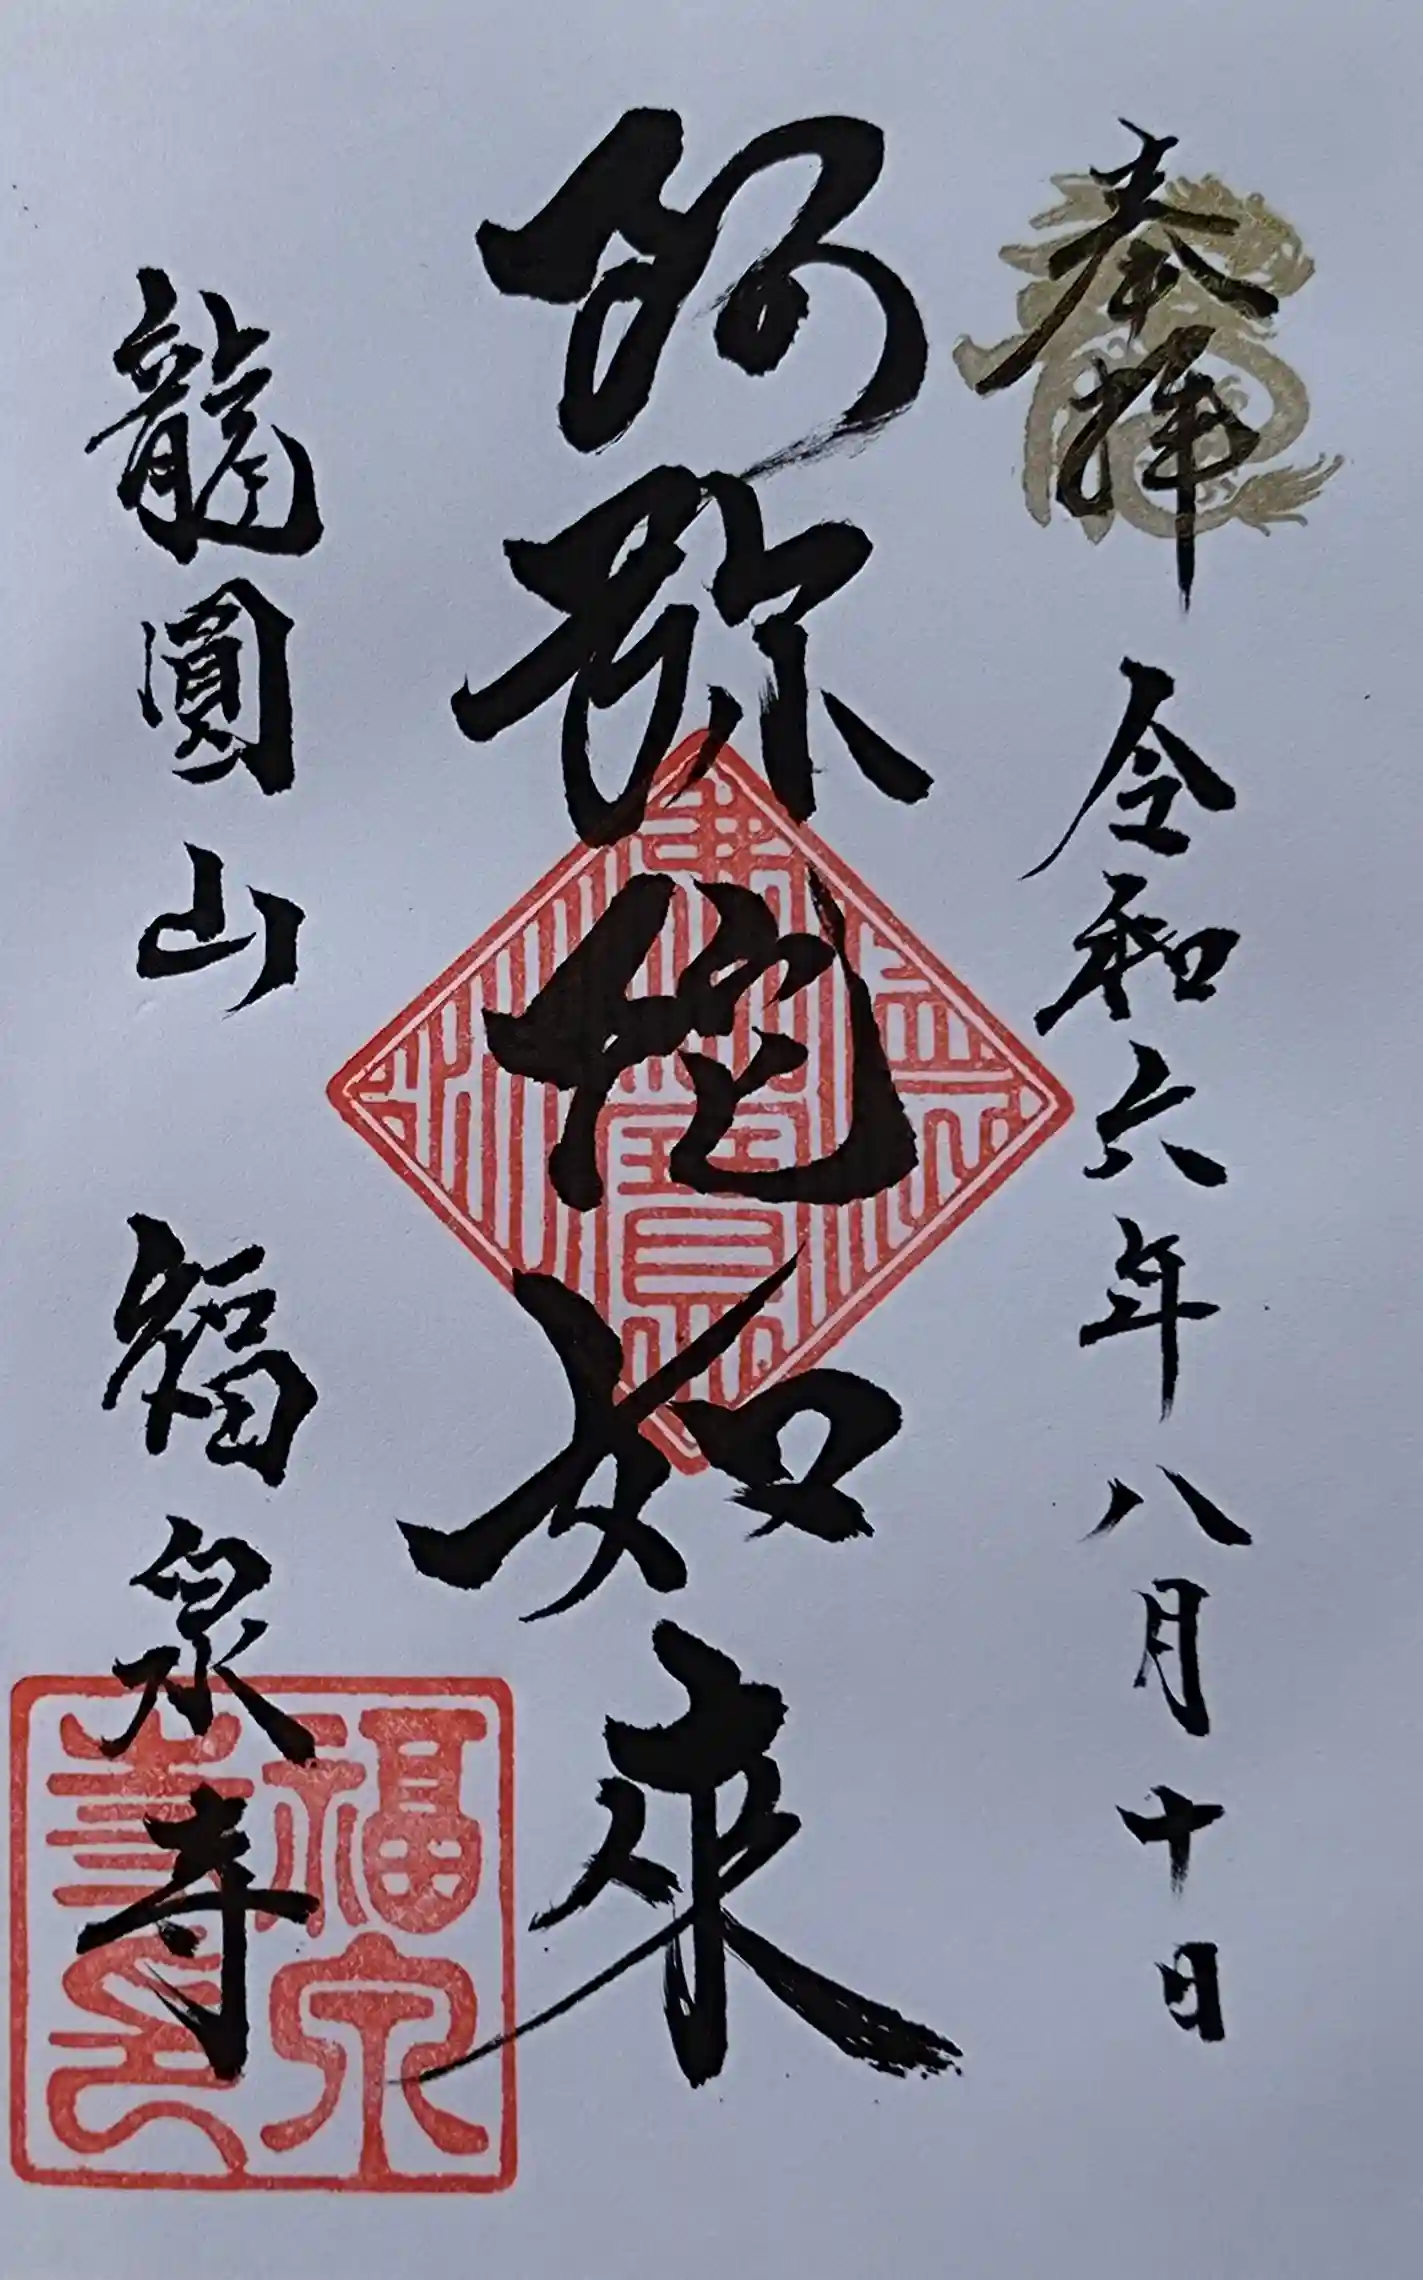 奉拝 令和六年八月十日
阿弥陀如来
龍圓山 福泉寺
佛法僧寶
福泉寺印